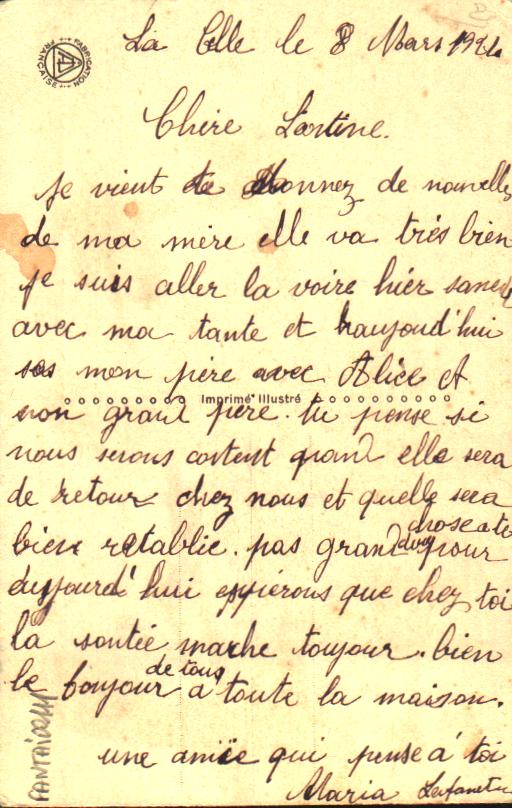 FABRICATION FRANÇAISE
La Celle le 8 Mars
Chère
je vient donnez de nouvelles
de ma mère elle va très bien
je suis aller la voire hier samedi
avec ma tante et aujoud'hui
mon père avec Alice et
Imprimé Illustré
mon grand père. tu pense si
nous serons content quand elle sera
de retour chez nous et quelle sera
bien retablie. pas grand chose a te
dire pour
aujourd'hui espiérons que chez toi
la santée marche toujour. bien
le bonjour de tous à toute la maison.
une amïe qui pense à toi
Maria